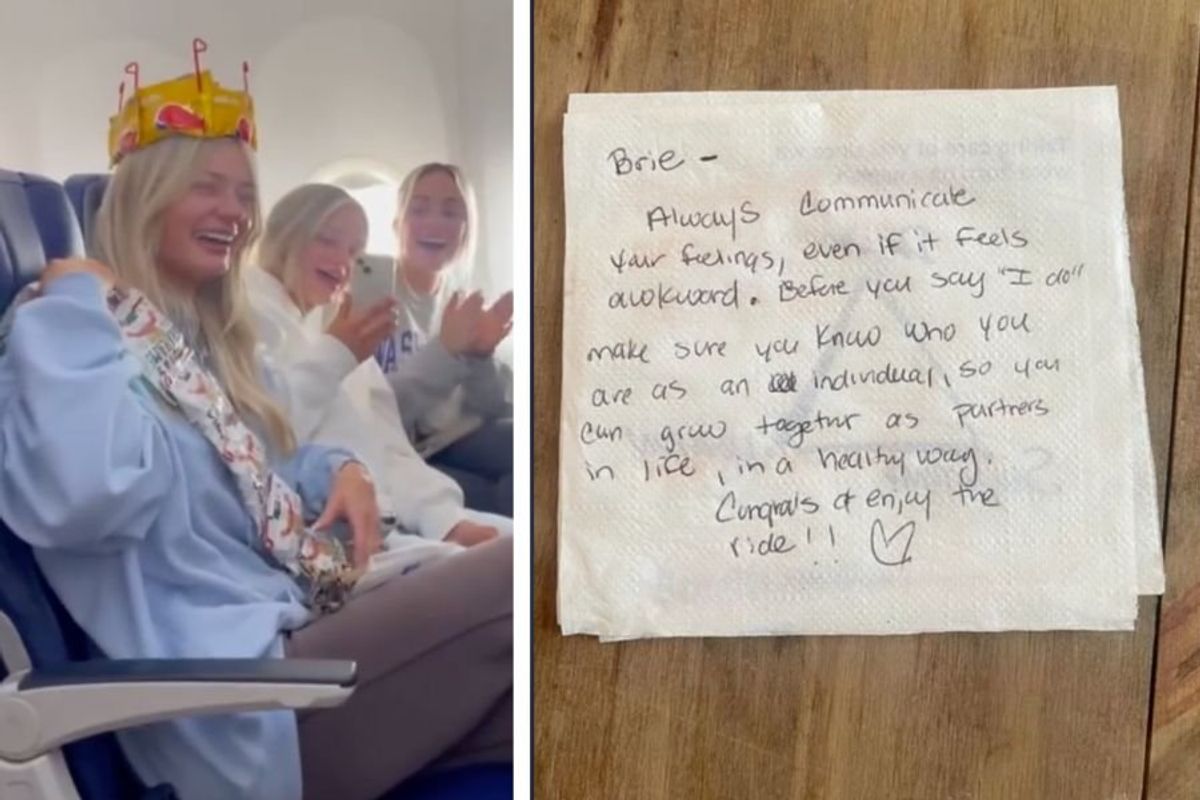 Brie -
Always Communicate
your feelings, even if it feels
awkward. Before you say "I do"
make sure you know who you
are as an individual, so you
can grow together as partners
in life, in a healthy way.
Congrats & enjoy the
ride!!